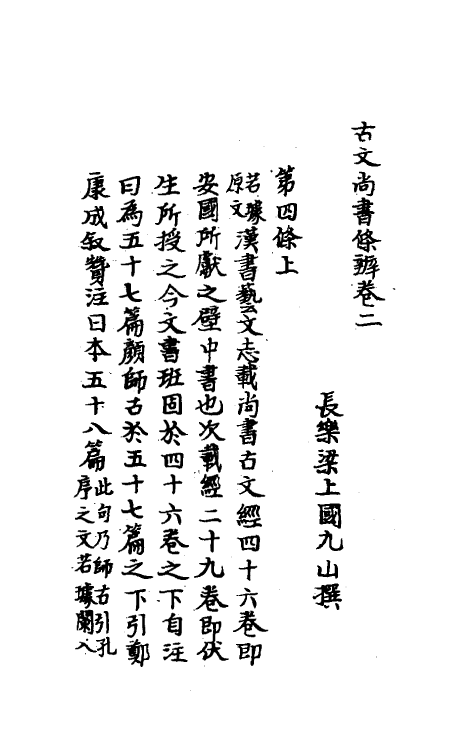 古文尚書條辨卷二
長樂梁上國九山撰
第四條上
若璩原文漢書藝文志載尚書古文經四十六卷即
安國所獻之壁中書也次載經二十九卷即伏
生所授之今文書班固於四十六卷之下自注
曰為五十七篇顏師古於五十七篇之下引鄭
康成叙贊注曰本五十八篇此句乃師古引孔序之文若璩闌入